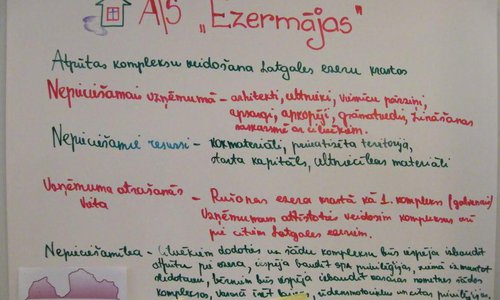 A/S „Ezermājas"
Atpūtas kompleksu veidošana Latgales ezeru krastos
Nepieciešamai uzņēmumā – arhitekti, celtnieki,
apsargi, apkopēji, grāmatvedis, zināšanas
saskarsmē ar cilvēkiem.
Nepieciešamie resursi – kokmateriāli, privatizēta teritorija,
starta kapitāls, celtniecības materiāli
Uzņēmuma atrašanās – Rušonas ezera krastā kā 1. komplekss (galvenais)
vieta Uzņēmumam attīstoties veidosim kompleksus arī
pie citiem Latgales ezeriem.
Nepieciešamība – Cilvēkiem dodoties uz šādu kompleksu būs iespēja izbaudīt
atpūtu pie ezera, iespēja baudīt spa privilēģijas, ziemā izmantot
slidotavu, bērniem būs iespēja izbaudīt vasaras nometnes šādos
kompleksos, varēs īrēt laivas, ūdensmotociklus un citas privilēģijas